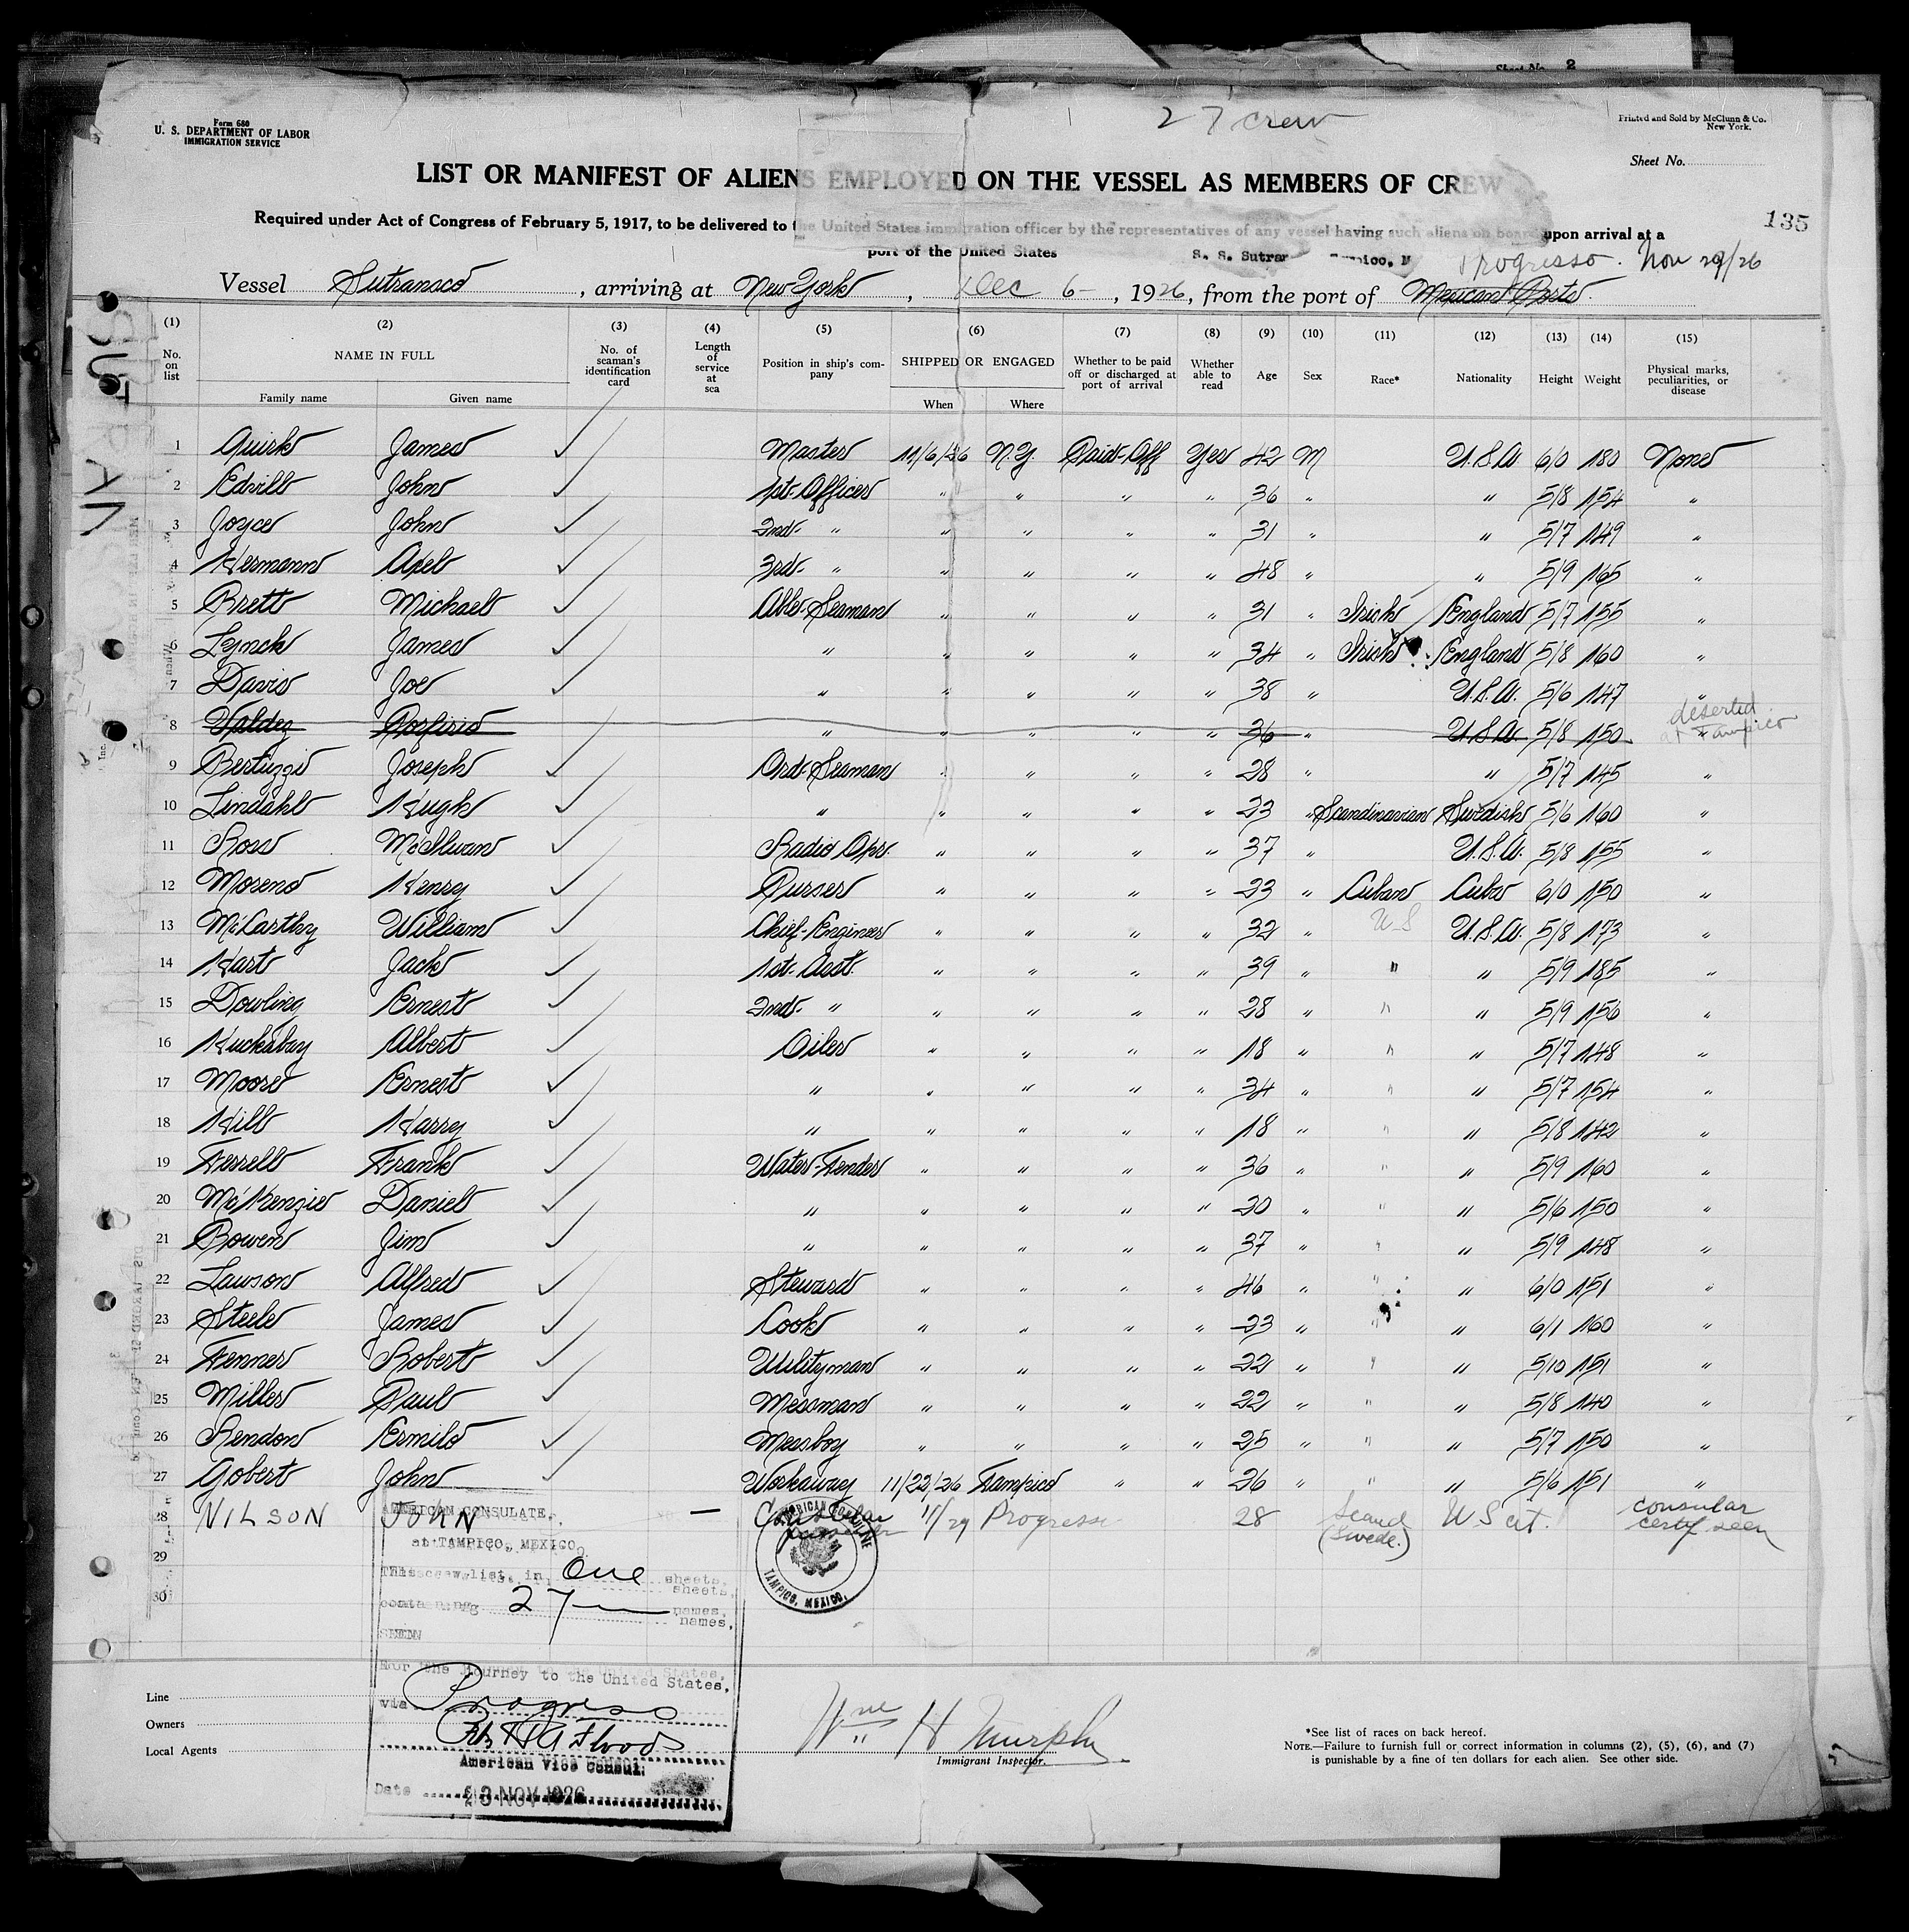 Sheet No. 2
27 crew
Form 680
U. S. DEPARTMENT OF LABOR
IMMIGRATION SERVICE
Printed and Sold by McClunn & Co.
New York.
Sheet No.
LIST OR MANIFEST OF ALIENS EMPLOYED ON THE VESSEL AS MEMBERS OF CREW
135
Required under Act of Congress of February 5, 1917, to be delivered to the United States immigration officer by the representatives of any vessel having such aliens on board upon arrival at a
port of the United States
S. S. Sutran
Progresso. Nov 29/26
Vessel Sutransco, arriving at New York, Dec 6-, 1926, from the port of Mexican Ports.
(1) (2) (3) (4) (5) (6) (7) (8) (9) (10) (11) (12) (13) (14) (15)
No. on list NAME IN FULL No. of seaman's identification card Length of service at sea Position in ship's company SHIPPED OR ENGAGED Whether to be paid off or discharged at port of arrival Whether able to read Age Sex Race* Nationality Height Weight Physical marks, peculiarities, or disease
Family name Given name When Where
1 Quirk James ✓ Master 11/6/26 N.Y. Paid-Off Yes 42 M U.S.A. 6/0 180 None
2 Edvill John ✓ 1st-Officer " " " " 36 " " 5/8 154 "
3 Joyce John ✓ 2nd- " " " " " 31 " " 5/7 149 "
4 Hermann Axel ✓ 3rd- " " " " " 48 " " 5/9 165 "
5 Brett Michael ✓ Able-Seaman " " " " 31 " Irish England 5/7 155 "
6 Lynch James ✓ " " " " " 34 " Irish England 5/8 160 "
7 Davis Joe ✓ " " " " " 38 " U.S.A. 5/6 147 "
8 Valdez Porfirio " " " " " 36 " U.S.A. 5/8 150 " deserted at Tampico
9 Bertuzzi Joseph ✓ Ord-Seaman " " " " 28 " " 5/7 145 "
10 Lindahl Hugh ✓ " " " " " 23 " Scandinavian Swedish 5/6 160 "
11 Ross McIlwan ✓ Radio Opr. " " " " 37 " U.S.A. 5/8 155 "
12 Moreno Henry ✓ Purser " " " " 23 " Cuban Cuba 6/0 150 "
13 McCarthy William ✓ Chief-Engineer " " " " 32 " U.S U.S.A. 5/8 173 "
14 Hart Jack ✓ 1st-Asst. " " " " 39 " " " 5/9 185 "
15 Dowling Ernest ✓ 2nd- " " " " " 28 " " " 5/9 156 "
16 Huckabay Albert ✓ Oiler " " " " 18 " " " 5/7 148 "
17 Moore Ernest ✓ " " " " " 34 " " " 5/7 154 "
18 Hill Harry ✓ " " " " " 18 " " " 5/8 142 "
19 Ferrell Frank ✓ Water-Tender " " " " 36 " " " 5/9 160 "
20 McKenzie Daniel ✓ " " " " " 30 " " " 5/6 150 "
21 Bowen Jim ✓ " " " " " 37 " " " 5/9 148 "
22 Lawson Alfred ✓ Steward " " " " 46 " " " 6/0 151 "
23 Steele James ✓ Cook " " " " 23 " " " 6/1 160 "
24 Fenner Robert ✓ Utilityman " " " " 22 " " " 5/10 151 "
25 Miller Paul ✓ Messman " " " " 22 " " " 5/8 140 "
26 Rendon Ermilo ✓ Messboy " " " " 25 " " " 5/7 150 "
27 Gobert John ✓ Workaway 11/22/26 Tampico " " 26 " " " 5/6 151 "
28 NILSON JOHN — Consular passenger 11/29 Progreso 28 Scand (Swede.) U S cit. consular certif seen
29
30
AMERICAN CONSULATE,
at TAMPICO, MEXICO
This crew list, in one sheets,
containing 27 names,
SEEN
For the Journey to the United States,
via Progreso
American Vice Consul
Date 23 NOV 1926
TAMPICO, MEXICO.
Line
Owners
Local Agents
Wm H Murphy
Immigrant Inspector.
*See list of races on back hereof.
NOTE.—Failure to furnish full or correct information in columns (2), (5), (6), and (7)
is punishable by a fine of ten dollars for each alien. See other side.